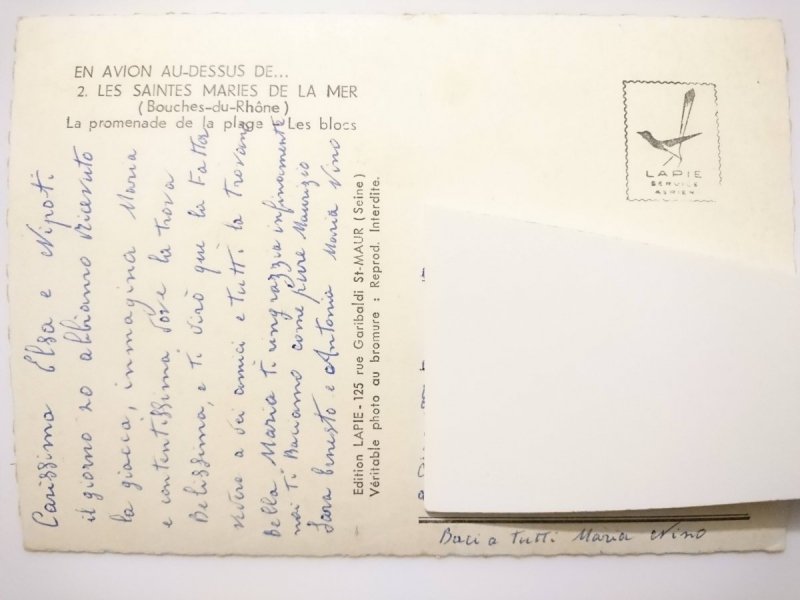 EN AVION AU-DESSUS DE...
2. LES SAINTES MARIES DE LA MER
(Bouches-du-Rhône)
La promenade de la plage - Les blocs
Carissima Elsa e Nipoti.
il giorno 20 abbiamo ricevuto
la giacca, inmagina Maria
e contentissima dove la trova
Belissima, e ti dirò que la fatta
vedere a sei amici e tutti la trovano
bella Maria ti ringrazzia infinamente
noi Ti Baciamo come pure Maurizio
Sara Ernesto e Antonia Maria Nino
Edition LAPIE - 125 rue Garibaldi St-MAUR (Seine)
Véritable photo au bromure : Reprod. Interdite.
LAPIE
SERVICE
AERIEN
Baci a tutti Maria Nino